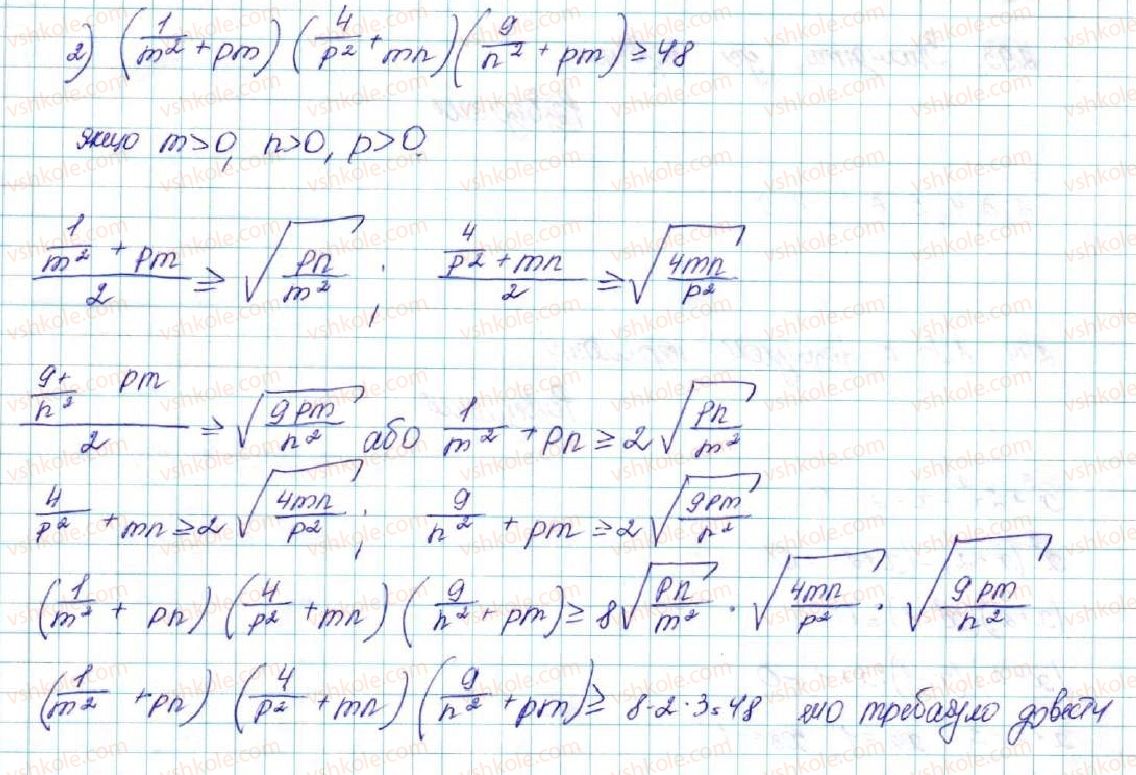 2) (1/m² + pm) (4/p² + mn) (9/n² + pm) ≥ 48
якщо m>0, n>0, p>0.
(1/m² + pm)/2 ≥ √(pn/m²) ; (4/p² + mn)/2 ≥ √(4mn/p²)
(9/n² + pm)/2 ≥ √(9pm/n²) або 1/m² + pn ≥ 2√(pn/m²)
4/p² + mn ≥ 2√(4mn/p²) ; 9/n² + pm ≥ 2√(9pm/n²)
(1/m² + pn) (4/p² + mn) (9/n² + pm) ≥ 8√(pn/m²) · √(4mn/p²) · √(9pm/n²)
(1/m² + pn) (4/p² + mn) (9/n² + pm) ≥ 8·2·3=48 що требауло довести